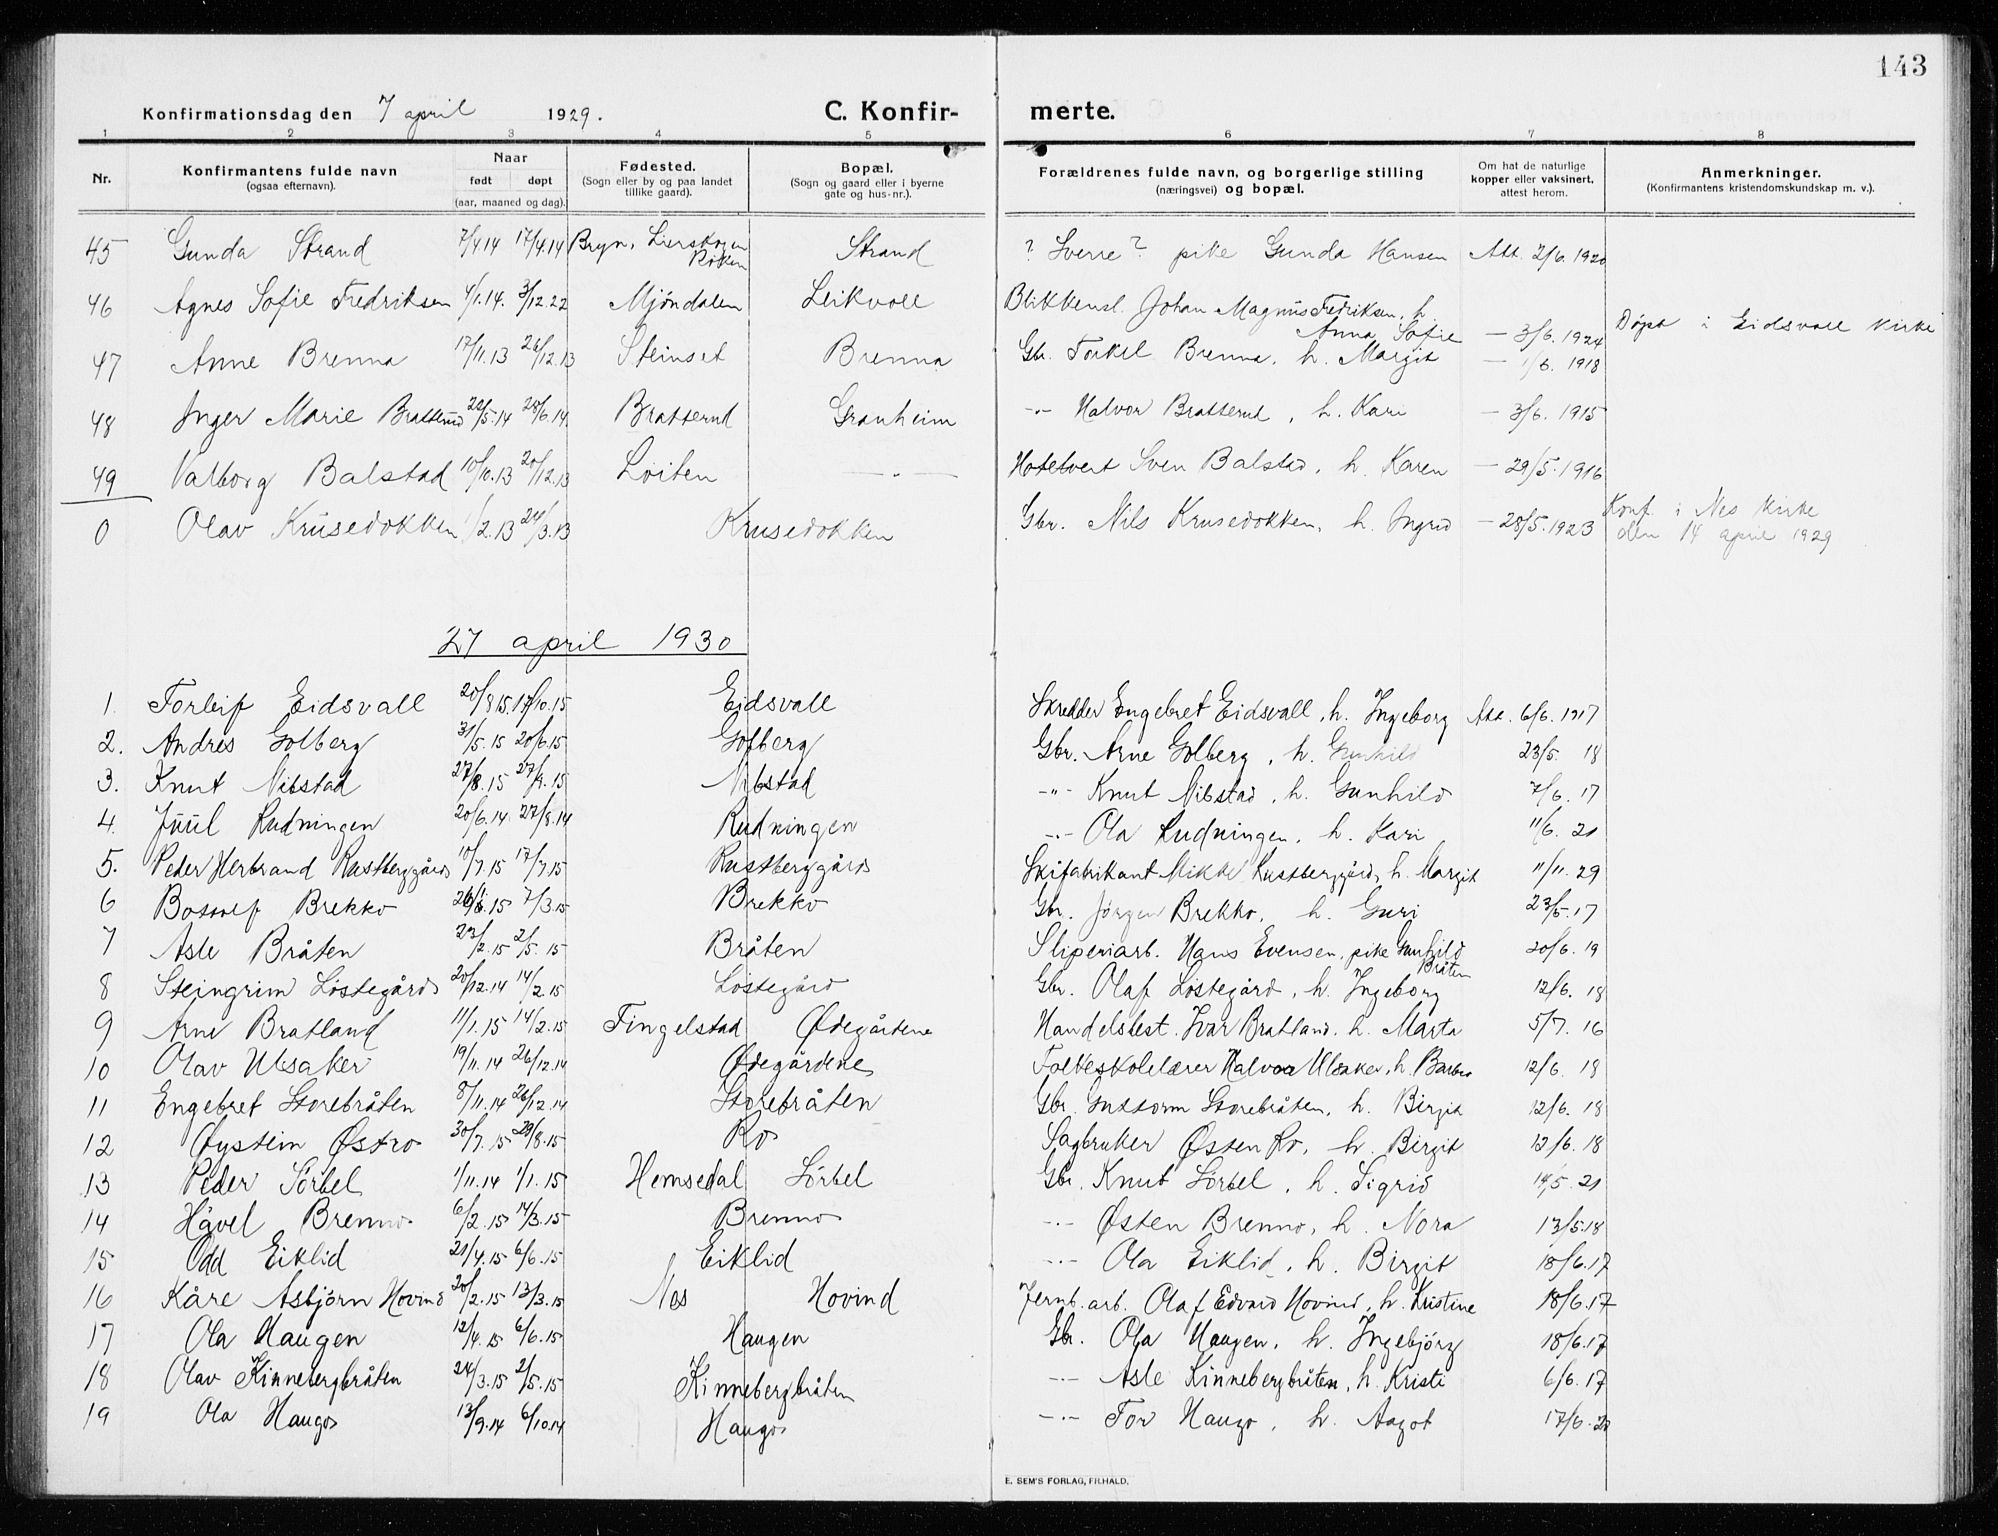 143
Konfirmationsdag den 7 april 1929. C. Konfir- merte.
1 2 3 4 5 6 7 8
Nr. Konfirmantens fulde navn (ogsaa efternavn). Naar født døpt (aar, maaned og dag). Fødested. (Sogn eller by og paa landet tillike gaard). Bopæl. (Sogn og gaard eller i byerne gate og hus-nr.). Forældrenes fulde navn, og borgerlige stilling (næringsvei) og bopæl. Om hat de naturlige kopper eller vaksinert, attest herom. Anmerkninger. (Konfirmantens kristendomskundskap m. v.).
45 Gunda Strand 7/4.14 17/4.14 Bryn, Lierskogen Røken Strand ? Sverre ? pike Gunda Hansen Att. 2/6. 1920
46 Agnes Sofie Fredriksen 4/1.14. 3/12.22 Mjøndalen Leikvoll Blikkensl. Johan Magnus Fredriksen, h. Anna Sofie — 3/6. 1924 Døpt i Eidsvoll Kirke
47 Anne Brenna 17/11.13 26/12.13 Steinset Brenna Gbr. Torkel Brenna, h. Margit — 1/6. 1918
48 Inger Marie Bratterud 22/5.14 28/6.14. Bratterud Granheim -"- Halvor Bratterud, h. Kari — 3/6. 1915
49 Valborg Balstad 10/10.13 20/12.13 Løiten —"— Hotelvert Sven Balstad, h. Karen — 29/5. 1916
0 Olav Krusedokken 1/2.13 24/3.13 Krusedokken Gbr. Nils Krusedokken, h. Ingrid — 28/5. 1923 Konf. i Nes Kirke den 14 april 1929
27 april 1930
1. Torleif Eidsvall 20/8 15. 17/10.15 Eidsvall Skredder Engebret Eidsvall, h. Ingeborg Att. 6/6. 1917
2. Andres Golberg 31/5.15 20/6.15 Golberg Gbr. Arne Golberg, h. Gunhild 23/5. 18
3. Knut Nibstad 27/8.15 27/9.15 Nibstad -"- Knut Nibstad, h. Gunhild 7/6. 17
4. Juul Rudningen 20/6.14 27/8.14 Rudningen -"- Ola Rudningen, h. Kari 11/6. 21
5. Peder Herbrand Rustberggård 10/7.15 17/7.15 Rustberggård Skifabrikant Mikkel Rustberggård, h. Margit 11/11. 29
6 Botolf Brekko 26/1.15 7/3.15 Brekko Gbr. Jørgen Brekko, h. Guri 23/5.17
7 Asle Bråten 23/2.15 2/5.15 Bråten Sliperiarb. Hans Evensen, pike Gunhild Bråten 20/6. 19
8 Steingrim Løstegård 20/12.14 14/2.15 Løstegård Gbr. Olaf Løstegård, h. Ingeborg 12/6. 18
9 Arne Bratland 11/1.15 14/2.15 Tingelstad Ødegårdene Handelsbest. Ivar Bratland, h. Marta 5/7. 16
10 Olav Ulsaker 19/11.14 26/12.14 Ødegårdene Folkeskolelærer Halvor Ulsaker, h. Barbro 12/6. 18
11 Engebret Storebråten 8/11.14 26/12.14 Storebråten Gbr. Guttorm Storebråten, h. Birgit 12/6. 18
12 Øystein Østro 30/7.15 29/8.15 Ro Sagbruker Østen Ro, h. Birgit 12/6. 18
13 Peder Sørbel 1/11.14 1/1.15 Hemsedal Sørbel Gbr. Knut Sørbel, h. Sigrid 14/5. 21
14 Håvel Brenno 6/2.15 14/3.15 Brenno -"- Østen Brenno, h. Nora 13/5.18
15 Odd Eiklid 21/4.15 6/6.15 Eiklid -"- Ola Eiklid, h. Birgit 18/6.17
16 Kåre Asbjørn Hovind 20/2.15 13/3.15 Nes Hovind Jernb. arb. Olaf Edvard Hovind, h. Kristine 18/6.17
17 Ola Haugen 12/4.15 6/6.15 Haugen Gbr. Ola Haugen, h. Ingebjørg 18/6.17
18 Olav Kinnebergbråten 24/3.15 2/5.15 Kinnebergbråten -"- Asle Kinnebergbråten, h. Kristi 6/6.17
19 Ola Haugo 13/9.14 6/10.14 Haugo -"- Tor Haugo, h. Aagot 17/6.20
E. SEM'S FORLAG, FR.HALD.